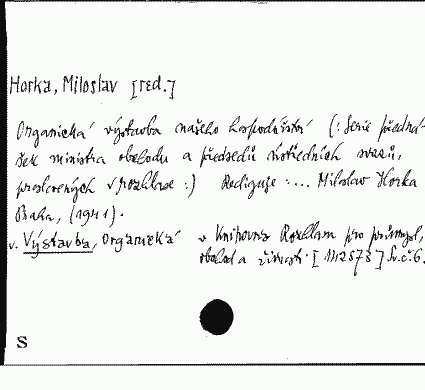 Horka, Miloslav [red.]
Organická výstavba našeho hospodářství (: Serie předná-
šek ministra obchodu a předsedů ústředních svazů,
proslovených v rozhlase :) Rediguje : ... Miloslav Horka
Praha, (1941).
v. Výstavba, Organická v Knihovna Rozhlasu pro průmysl,
obchod a živnosti. [1112578] Sv.č.6.
S